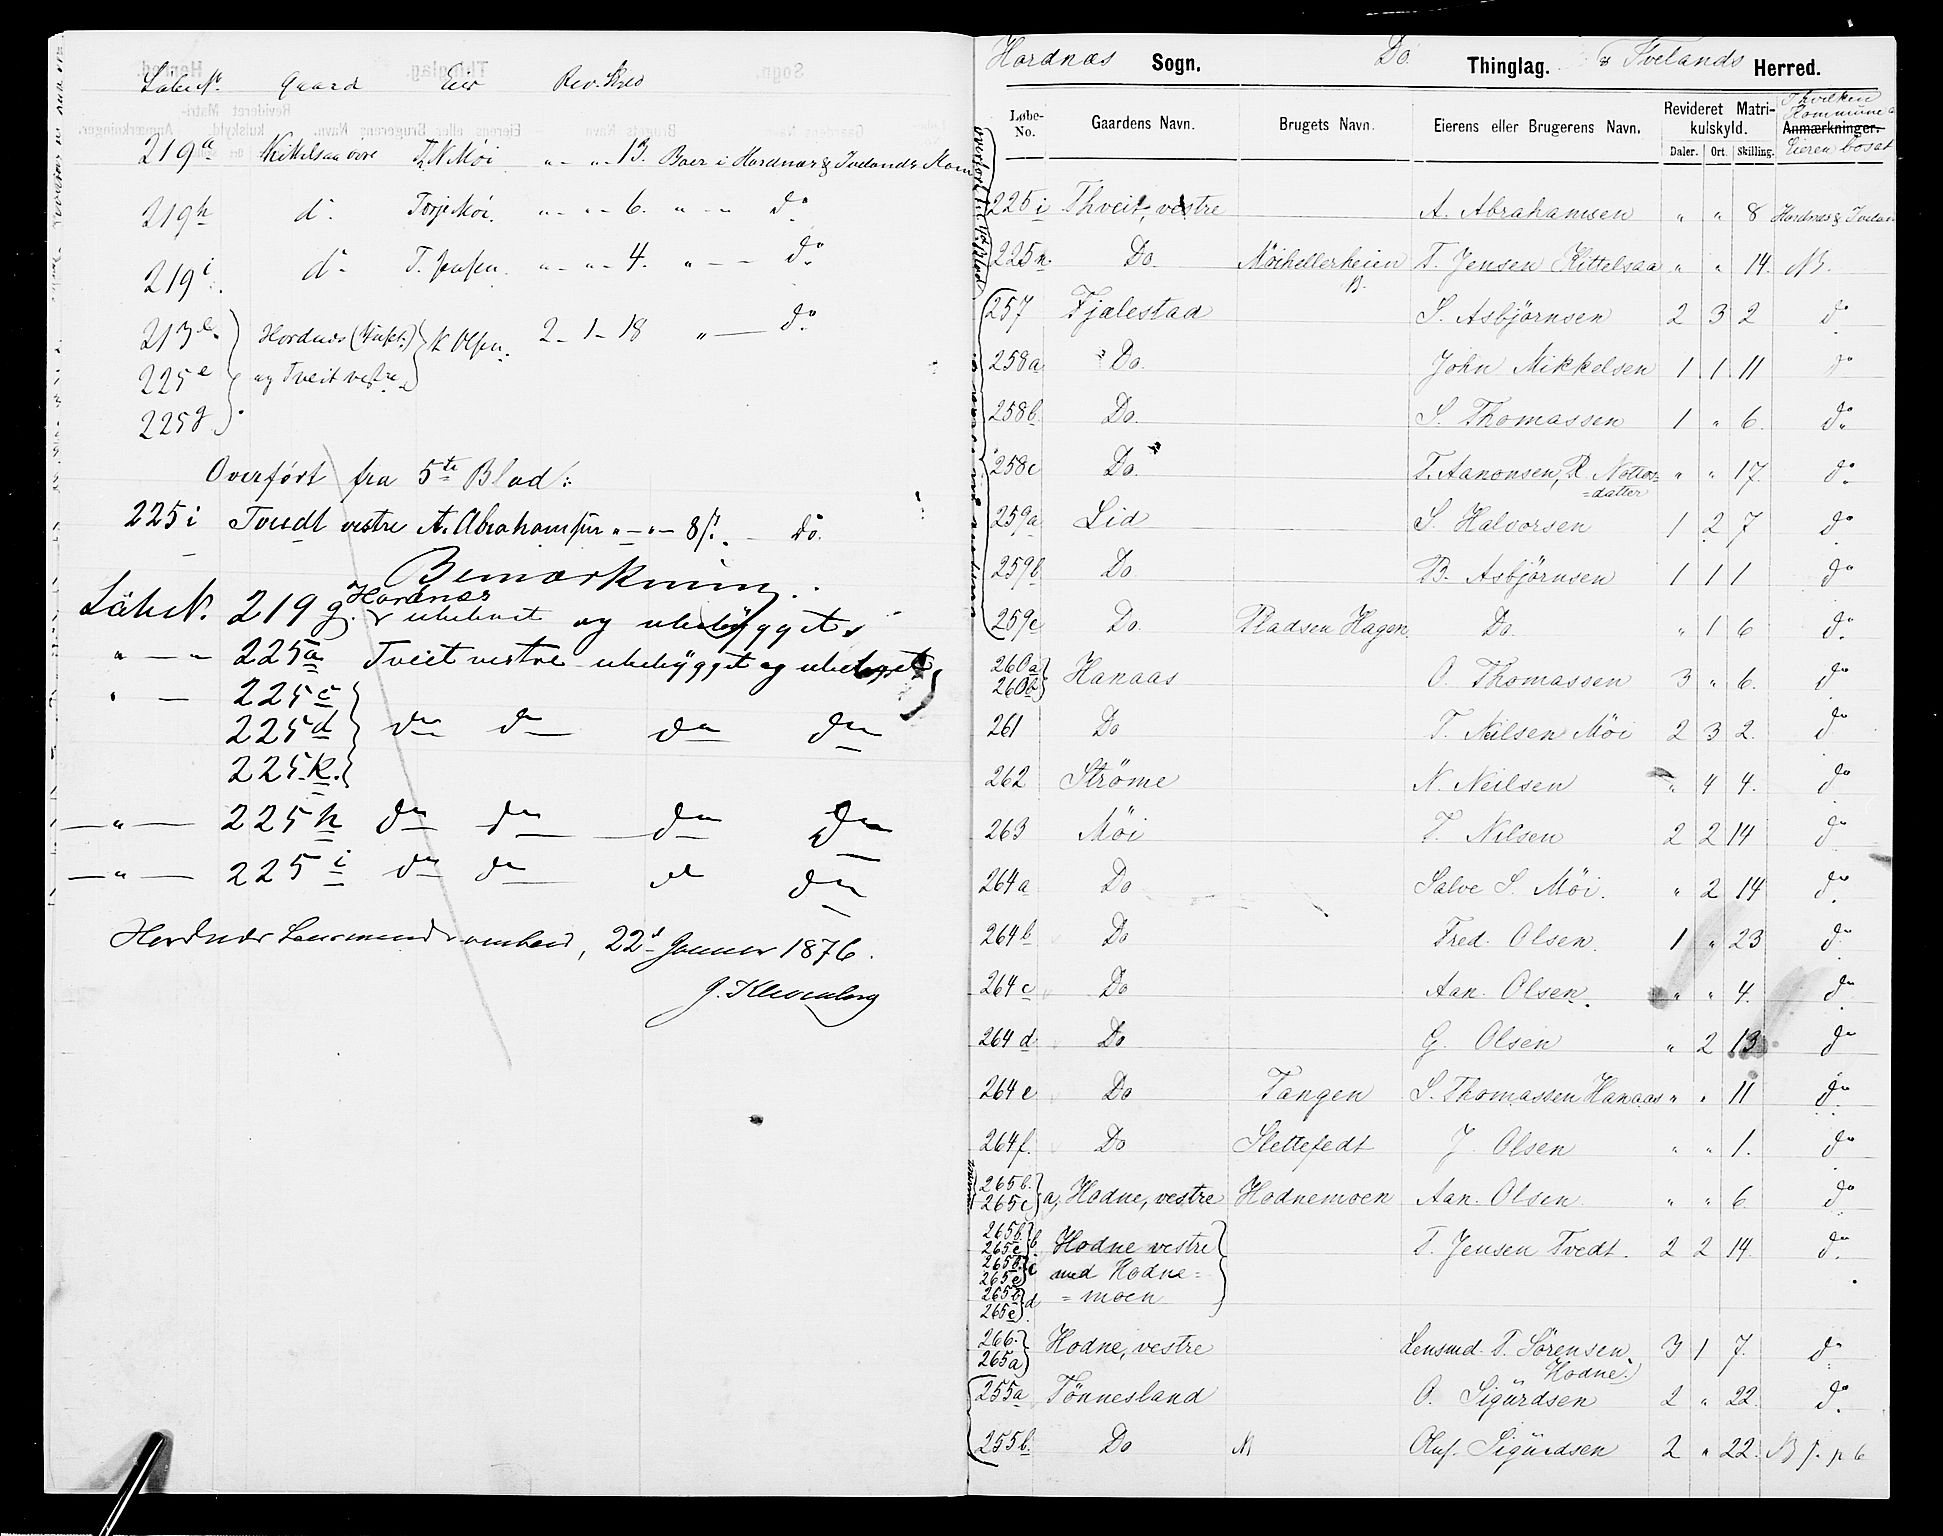 Löbe N. Gaard Eier Rev. Skyld
219a Kittelsaa øvre T. N. Möi " - " - 13. Boer i Hordnæs & Ivelands Kom
219h do. Torje Möi. " - " - 6. " - " do
219i. do. T. Jensen. " - " - 4. " - - do
213b. Hordnæs K. Olsen. 2 - 1 - 18 " — do
225e og Tveit vestre
225g.
Overført fra 5te Blad:
225i Tvedt vestre A. Abrahamsen " - " - 8 s. - do.
Bemærkning.
Löbe N. 219g. Hordnæs ubeboet og ubebygget
" — " 225a Tveit vestre ubebygget og ubeboet
" — 225c
225d do do do do
225k.
— " — 225h do do do do
— " — 225i do do do do
Hordnæs Lensmandsembed, 22d Januar 1876.
J. Klevenberg
Hordnæs Sogn. Do. Thinglag. & Ivelands Herred.
Løbe-No. Gaardens Navn. Brugets Navn. Eierens eller Brugerens Navn. Revideret Matrikulskyld. Daler. Ort. Skilling. Anmærkninger. I hvilken Kommune Eieren bosat
225i Thveit, vestre A. Abrahamsen " " 8 Hordnæs & Iveland
225n. Do. Möihellerheien T. Jensen Kittelsaa " " 14. NB.
257 Fjalestad S. Asbjörnsen 2 3 2 do
258a Do. John Mikkelsen 1 1 11 do
258b. Do. S. Thomassen 1 " 6. do
258c Do. T. Aanonsen, R. Nottos= " " 17. do
=datter
259a Lid S. Halvorsen 1 2 7 do
259b Do. B. Asbjörnsen 1 1 1 do
259c Do. Pladsen Hagen Do. " 1 6 do
260a
260b Hanaas O. Thomassen 3 " 6. do
261 Do T. Neilsen Möi 2 3 2. do
262 Ströme N. Neilsen " 4 4. do
263 Möi T. Nilsen 2 2 14 do
264a Do Salve S. Möi. " 2 14 do
264b Do Fred. Olsen. 1 " 23 do
264c Do Aan. Olsen. " " 4. do
264d Do G. Olsen " 2 13 do
264e Do Tangen S. Thomassen Hanaas " " 11 do
264f. Do Slettefedt J. Olsen " " 1. do
265b.
265c a, Hodne, vestre Hodnemoen Aan. Olsen " " 6 do
265b
265c b. Hodne vestre T. Jensen Tvedt. 2 2 14. do
265b
265c c med Hodne=
265b
265c d =moen
266.
265a Hodne, vestre Lensmd. T. Sörensen 3 1 7. do
Hodne.
255a Tönnesland O. Sigurdsen 2 " 22. do
255b. Do Oluf. Sigurdsen 2 " 22.